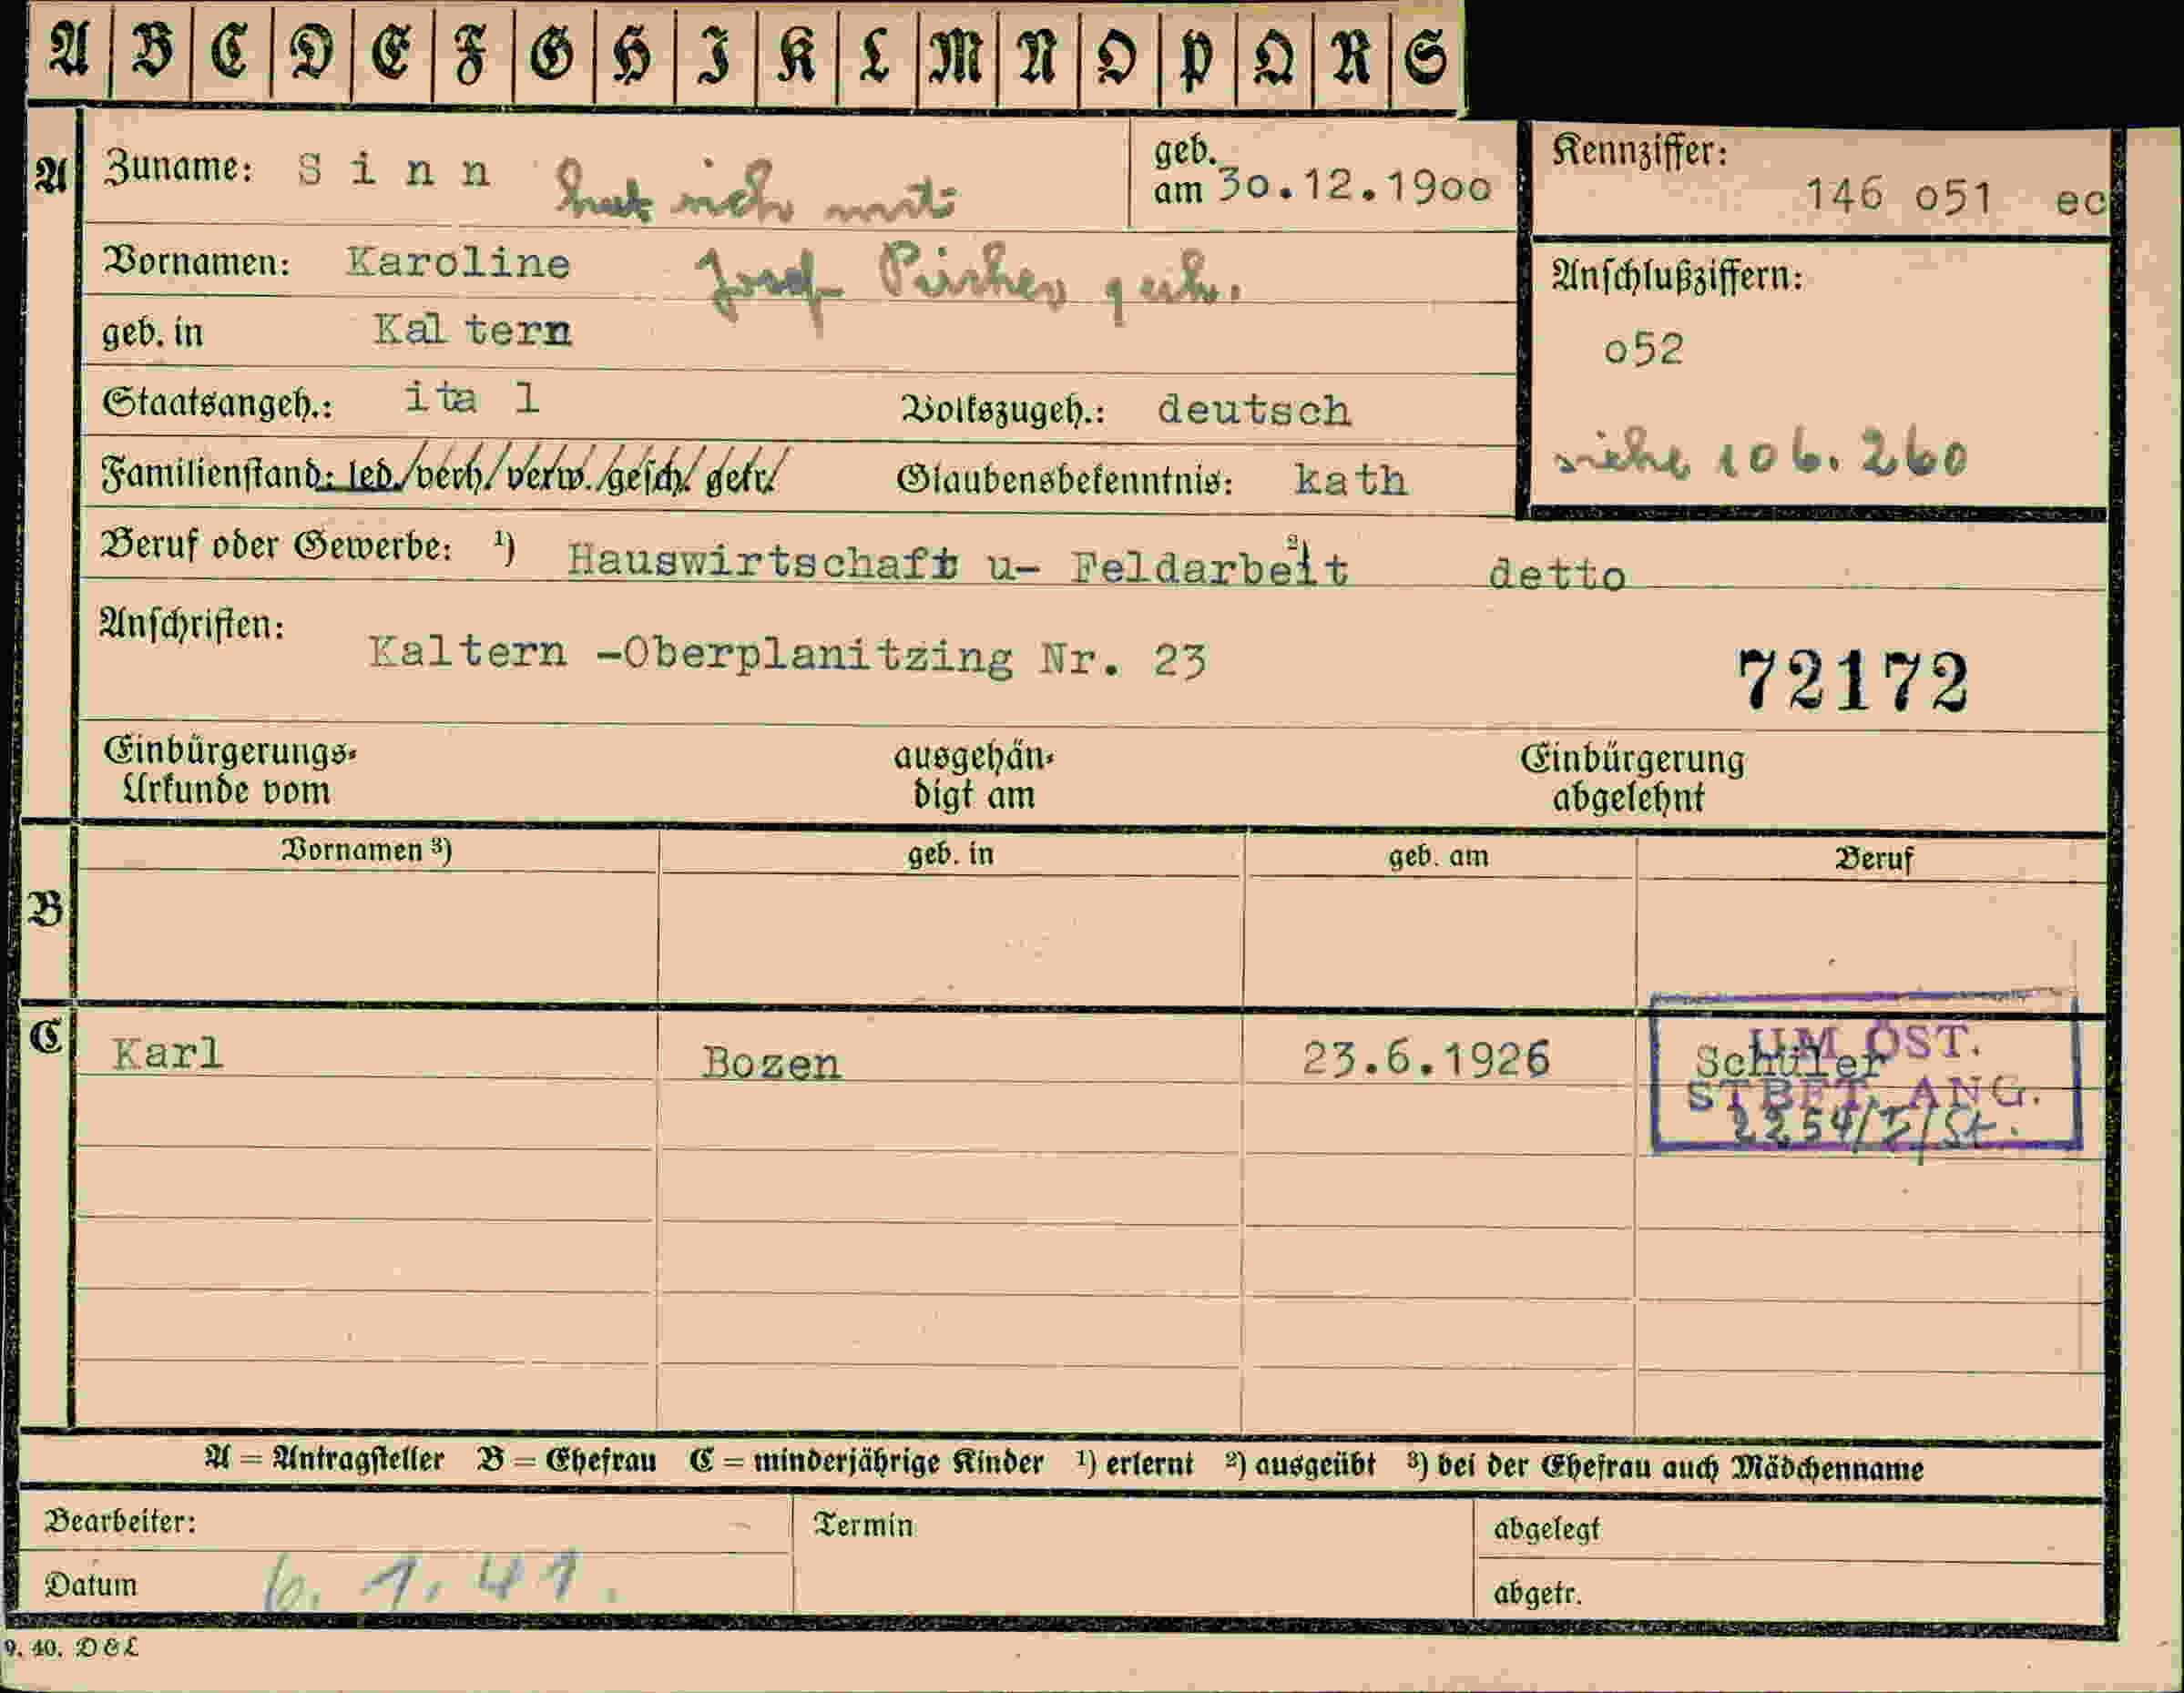 A B C D E F G H I K L M N O P Q R S
A Zuname: Sinn hat sich mit geb. am 30.12.1900
Kennziffer: 146 o51 ec
Vornamen: Karoline Josef Pircher geh.
geb. in Kal tern
Anschlußziffern:
o52
siehe 106.260
Staatsangeh.: ita l Volkszugeh.: deutsch
Familienstand: led./verh/verw./gesch/getr/ Glaubensbekenntnis: kath
Beruf oder Gewerbe: ¹) Hauswirtschaft u- Feldarbeit ²) detto
Anschriften: Kaltern -Oberplanitzing Nr. 23
72172
Einbürgerungs-Urkunde vom ausgehändigt am Einbürgerung abgelehnt
Vornamen ³) geb. in geb. am Beruf
B
C Karl Bozen 23.6.1926 Schüler
UM ÖST.
STBFT. ANG.
2254/I/St.
A = Antragsteller B = Ehefrau C = minderjährige Kinder ¹) erlernt ²) ausgeübt ³) bei der Ehefrau auch Mädchenname
Bearbeiter: Termin abgelegt
Datum 6. 1. 41. abgetr.
9. 40. D&L